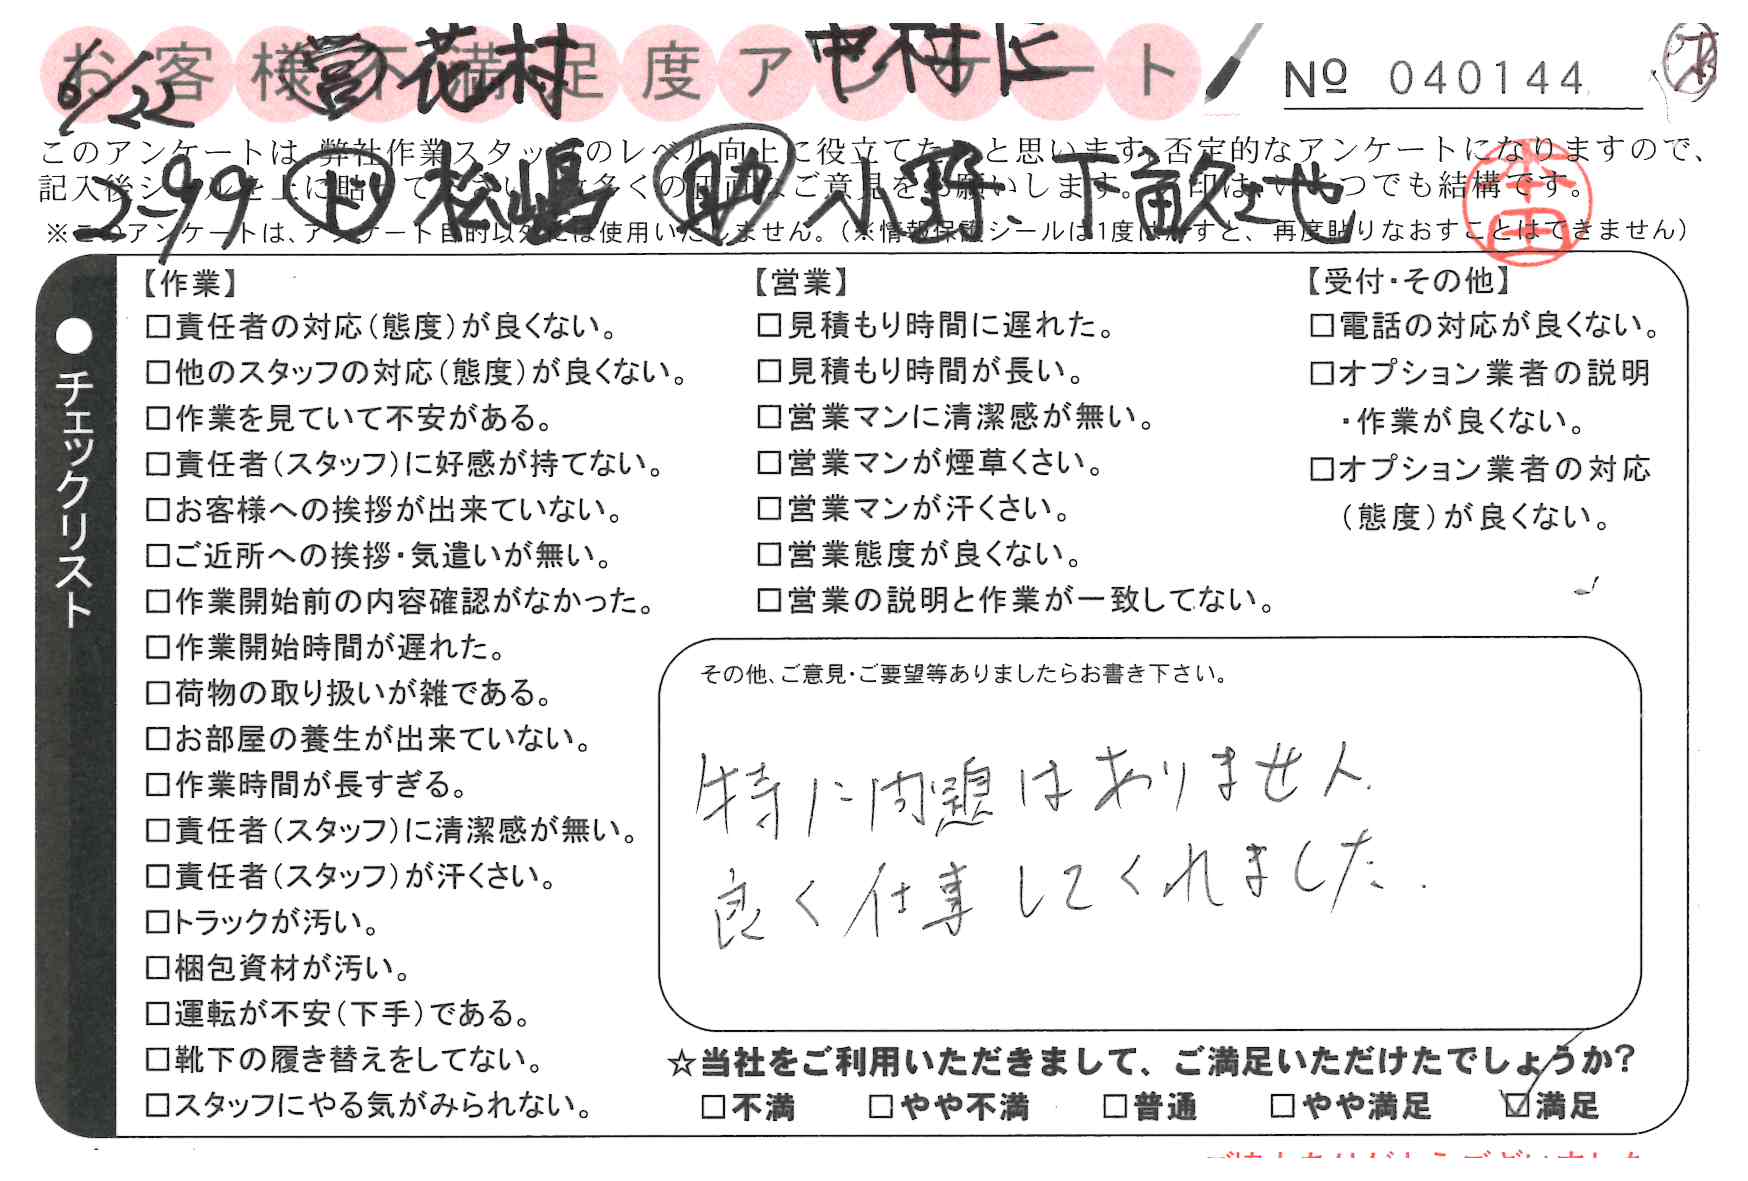 お客様不満足度アンケート
№ 040144
6/22 営 花村
このアンケートは、弊社作業スタッフのレベル向上に役立てたいと思います。否定的なアンケートになりますので、
記入後シールを上に貼って
2-99 ド 松嶋 助 小野、下
ご意見をお願いします。
印はいくつでも結構です。
本田
※このアンケートは、アンケート目的以外には使用いたしません。(※情報保護シールは1度はがすと、再度貼りなおすことはできません)
●チェックリスト
【作業】
□責任者の対応(態度)が良くない。
□他のスタッフの対応(態度)が良くない。
□作業を見ていて不安がある。
□責任者(スタッフ)に好感が持てない。
□お客様への挨拶が出来ていない。
□ご近所への挨拶・気遣いが無い。
□作業開始前の内容確認がなかった。
□作業開始時間が遅れた。
□荷物の取り扱いが雑である。
□お部屋の養生が出来ていない。
□作業時間が長すぎる。
□責任者(スタッフ)に清潔感が無い。
□責任者(スタッフ)が汗くさい。
□トラックが汚い。
□梱包資材が汚い。
□運転が不安(下手)である。
□靴下の履き替えをしてない。
□スタッフにやる気がみられない。
【営業】
□見積もり時間に遅れた。
□見積もり時間が長い。
□営業マンに清潔感が無い。
□営業マンが煙草くさい。
□営業マンが汗くさい。
□営業態度が良くない。
□営業の説明と作業が一致してない。
【受付・その他】
□電話の対応が良くない。
□オプション業者の説明
・作業が良くない。
□オプション業者の対応
(態度)が良くない。
その他、ご意見・ご要望等ありましたらお書き下さい。
特に問題はありません.
良く仕事してくれました.
☆当社をご利用いただきまして、ご満足いただけたでしょうか?
□不満 □やや不満 □普通 □やや満足 ☑満足